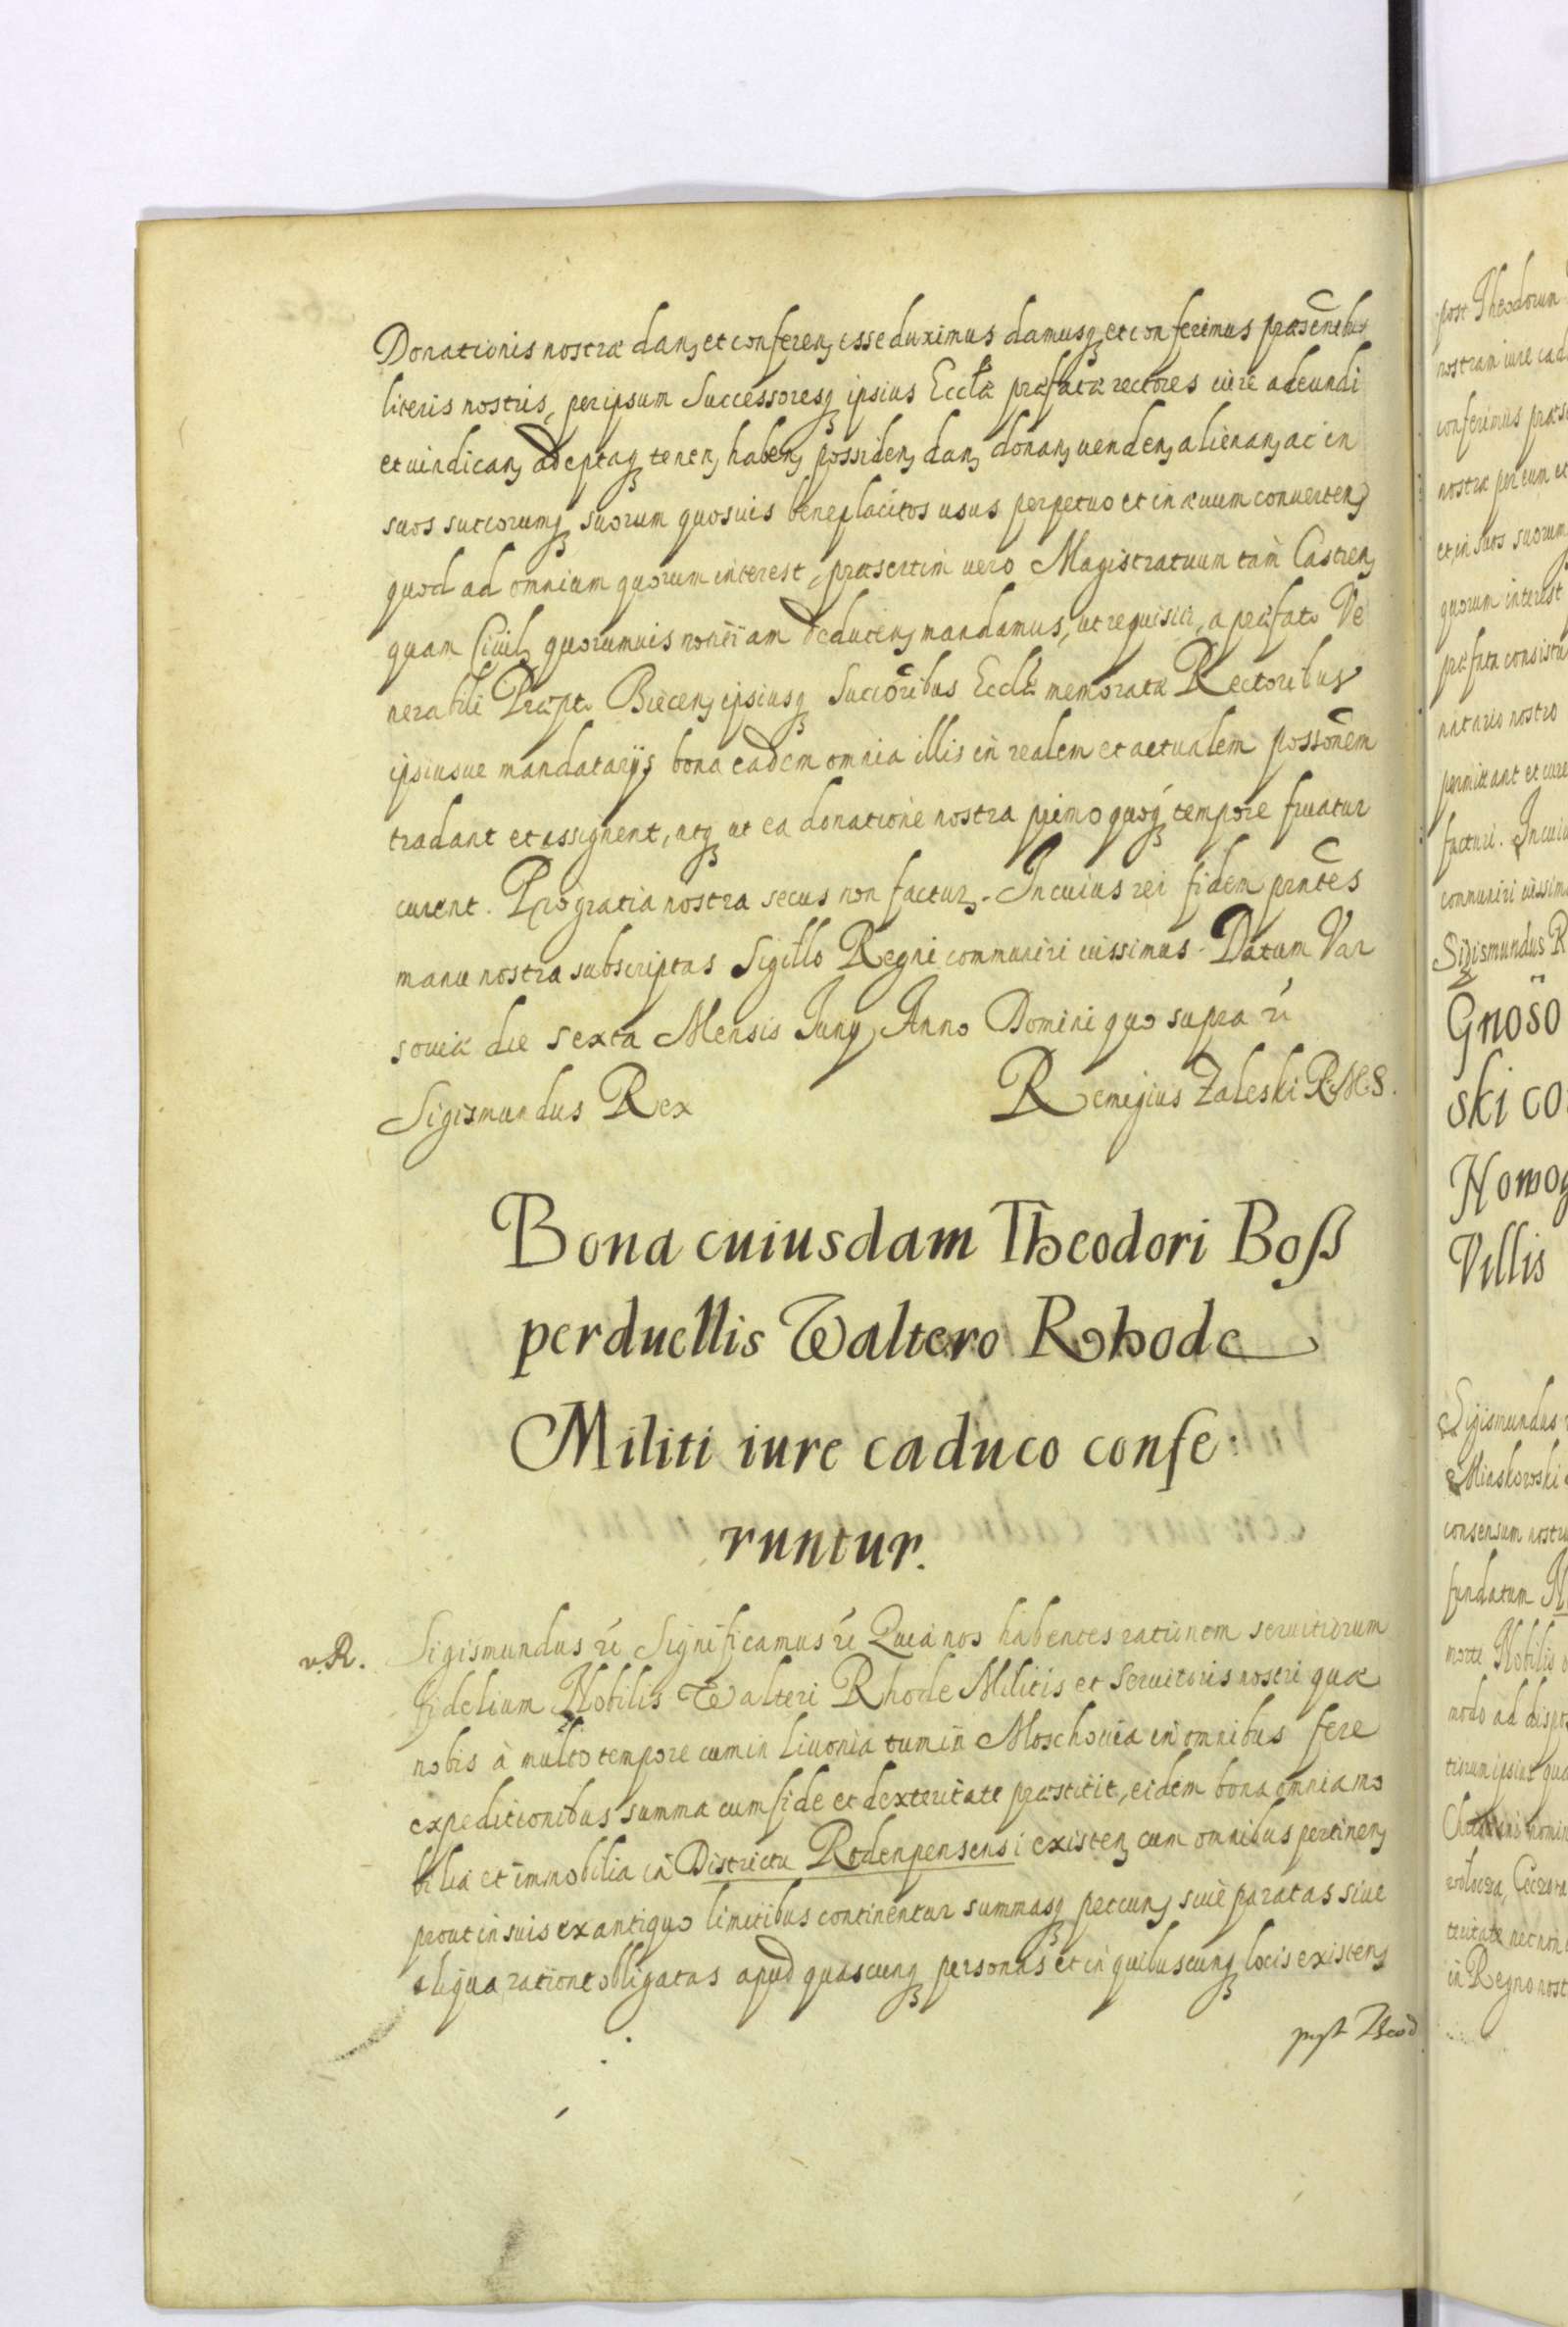 Donationis nostræ dan, et conferen, esse duximus damusq, et conferimus præsentibus
literis nostris, per ipsum Successoresq, ipsius Eccłæ præfatæ rectores iure adeundi
et uindican, adeptaq, tenen, haben, possiden, dan, donan, uenden, alienan, ac in
suos succorumq, suorum quosuis beneplacitos usus perpetuo et in æuum conuerten,
quod ad omnium quorum interest, præsertim uero Magistratuum tam Castren,
quam Ciuil, quorumuis notitiam deducen, mandamus, ut requisiti, a præfato Ve
nerabili Præpto Biecen, ipsiusq, Succoribus Eccłæ memoratæ Rectoribus
ipsiusue mandatarijs bona eadem omnia illis in realem et actualem possonem
tradant et assignent, atq, ut ea donatione nostra primo quoq, tempore fruatur
curent. Pro gratia nostra secus non factur,. In cuius rei fidem prntes
manu nostra subscriptas Sigillo Regni communiri iussimus. Datum Var
souiæ die sexta Mensis Iunij Anno Domini quo supra
Sigismundus Rex Remigius Zaleski R.M.S.
Bona cuiusdam Theodori Boß
perduellis Waltero Rhode
Militi iure caduco confe:
runtur.
v.R.
Sigismundus &c Significamus &c Quia nos habentes rationem seruitiorum
fidelium Nobilis Walteri Rhode Militis et Seruitoris nostri quæ
nobis à multo tempore cum in Liuonia tum in Moschouia in omnibus fere
expeditionibus summa cum fide et dexteritate præstitit, eidem bona omnia mo
bilia et immobilia in Districtu Rodenpensensi existen, cum omnibus pertinen,
prout in suis ex antiquo limitibus continentur summasq, peccun, siue paratas siue
aliqua ratione obligatas apud quascunq, personas et in quibuscunq, locis existen,
post Theod
post Theodorum
nostram iure cad
conferimus præs
nostræ per eum et
et in suos suorum
quorum interest
præfata consistu
natario nostro
permittant et cure
facturi. In cuiu
communiri iussim
Sigismundus R
Gnoso
ski co
Nowog
Villis
Sigismundus
Miaskowski
consensum nostru
fundatum
morte Nobilis
modo ad dispo
in Regno nost